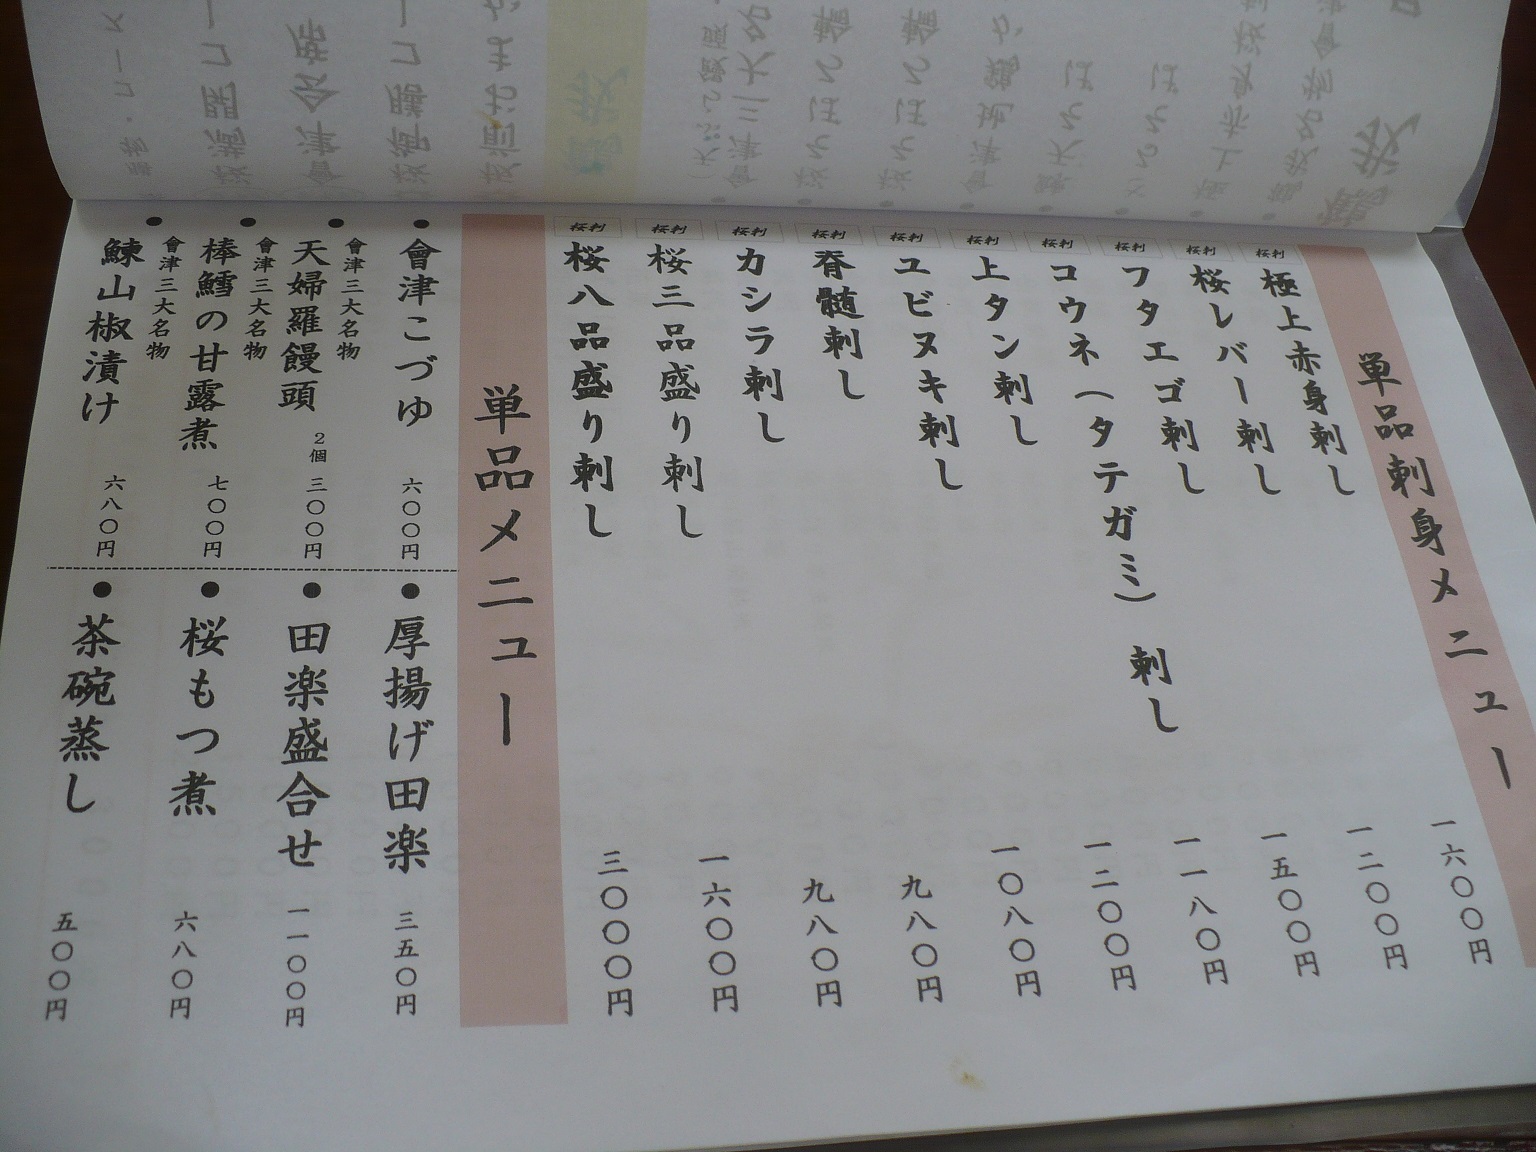 単品刺身メニュー
桜刺 極上赤身刺し 一六〇〇円
桜刺 桜レバー刺し 一二〇〇円
桜刺 フタエゴ刺し 一五〇〇円
桜刺 コウネ(タテガミ)刺し 一一八〇円
桜刺 上タン刺し 一二〇〇円
桜刺 ユビヌキ刺し 一〇八〇円
桜刺 脊髄刺し 九八〇円
桜刺 カシラ刺し 九八〇円
桜刺 桜三品盛り刺し 一六〇〇円
桜刺 桜八品盛り刺し 三〇〇〇円
単品メニュー
●會津こづゆ 六〇〇円
會津三大名物
●天婦羅饅頭 2個 三〇〇円
會津三大名物
●棒鱈の甘露煮 七〇〇円
會津三大名物
●鰊山椒漬け 六八〇円
●厚揚げ田楽 三五〇円
●田楽盛合せ 一一〇〇円
●桜もつ煮 六八〇円
●茶碗蒸し 五〇〇円